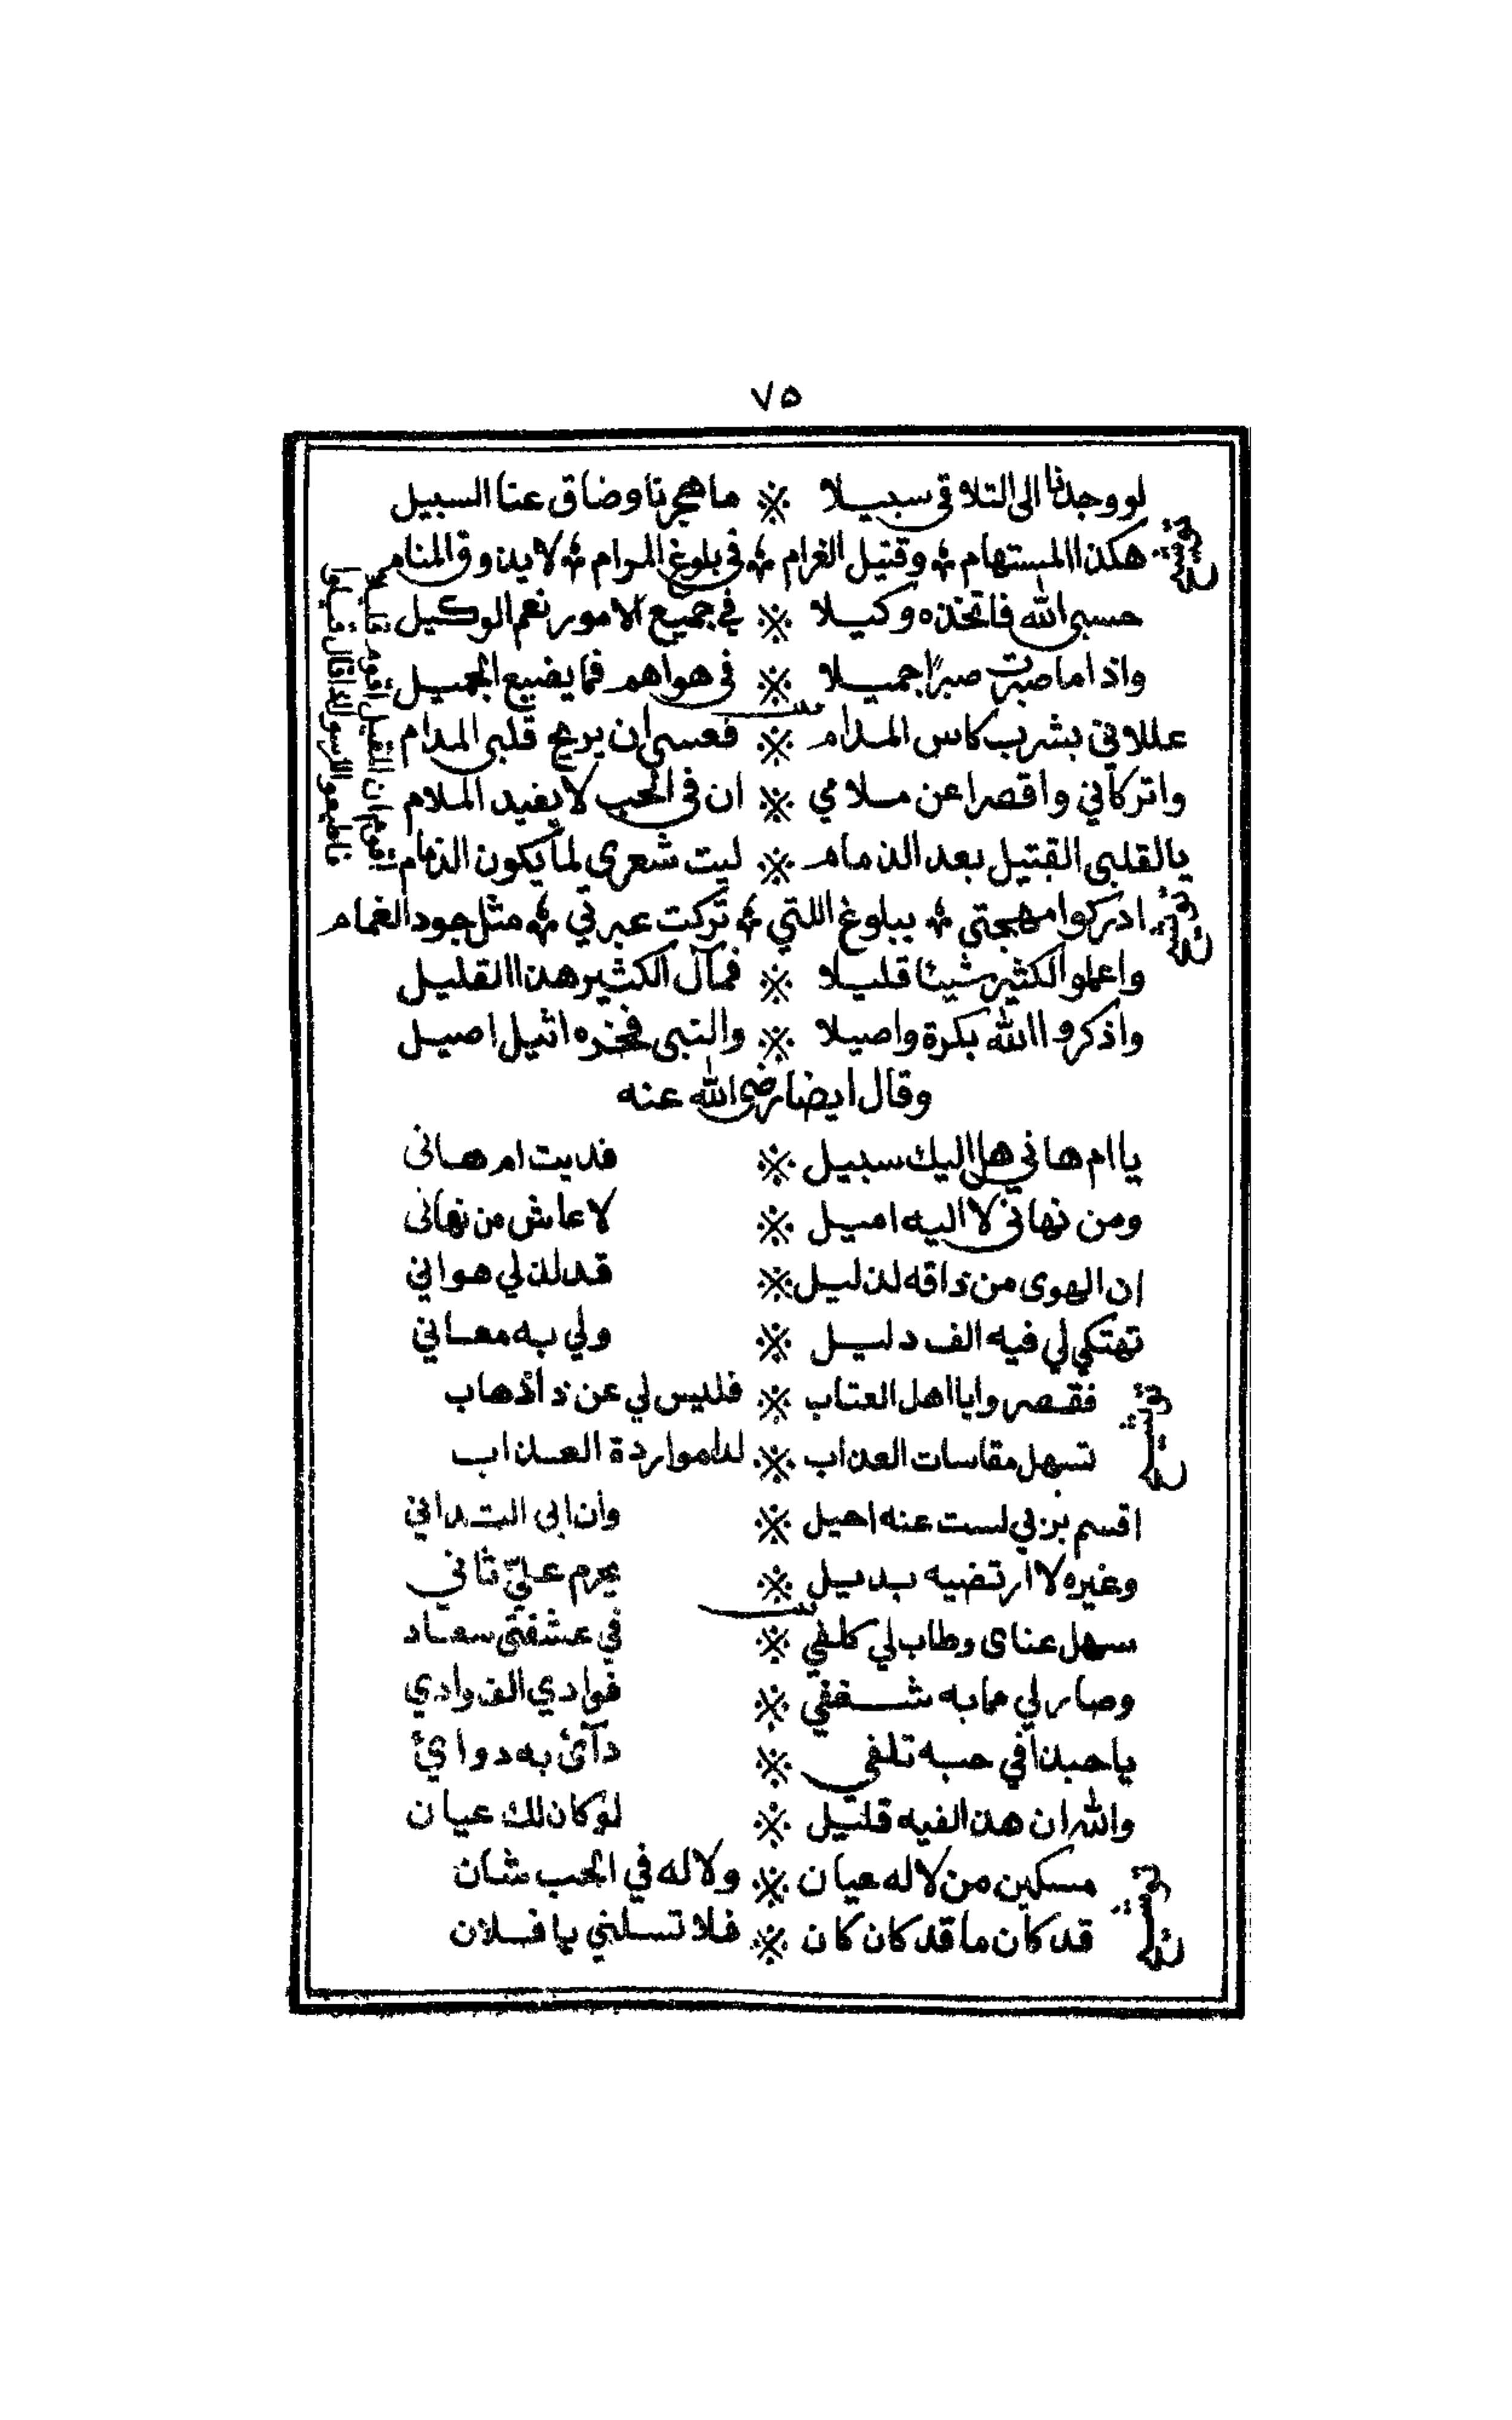 ٧٥
لو وجدنا الى التلاقى سبيلا ※ ما هجرنا وضاق عنا السبيل
توشيح
هكذا المستهام ؞ وقتيل الغرام ؞ فى بلوغ المرام ؞ لا يذوق المنام
حسبى الله فاتخذه وكيلا ※ في جميع الامور نعم الوكيل
واذا ما صبرت صبرًا جميلا ※ فى هواهم فما يضيع الجميل
بيت
عللانى بشرب كاس المدام ※ فعسى ان يريح قلبى المدام
واتركاني واقصرا عن ملامي ※ ان فى الحب لا يفيد الملام
يالقلبى القتيل بعد الذمام ※ ليت شعرى لما يكون الذمام
توشيح
ادركوا مهجتي ؞ ببلوغ اللتي ؞ تركت عبرتي ؞ مثل جود الغمام
واعملوا الكثير شيئا قليلا ※ فمآل الكثير هذا القليل
واذكروا الله بكرة واصيلا ※ والنبى فخره اثيل اصيل
وقال ايضا رضى الله عنه
يا ام هاني هل اليك سبيل ※ فديت ام هانى
ومن نهانى لا اليه اميل ※ لا عاش من نهانى
ان الهوى من ذاقه لذليل ※ قد لذ لي هواني
تهتكي لي فيه الف دليل ※ ولي به معاني
توشيح
فقصروا يا اهل العتاب ※ فليس لي عن ذا ذهاب
تسهل مقاسات العذاب ※ لذا مواردة العذاب
اقسم بربي لست عنه احيل ※ وان ابى التداني
وغيره لا ارتضيه بديل ※ يحرم عليّ ثاني
بيت
سهل عناى وطاب لي كلفي ※ في عشقتى سعاد
وصار لي مابه شغفي ※ فوادي الف وادي
يا حبذا في حبه تلفي ※ دآئ به دوايئ
والله ان هذا لفيه قليل ※ لو كان لك عيان
توشيح
مسكين من لا له عيان ※ ولا له في الحب شان
قد كان ما قد كان كان ※ فلا تسلني يا فلان